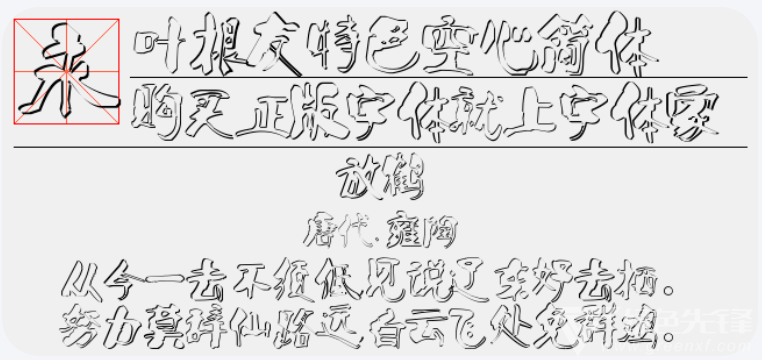 来
叶根友特色空心简体
购买正版字体就上字体家
放鹤
唐代.雍陶
从今一去不须低见说辽东好去栖.
努力莫辞仙路远白云飞处免群鸡.